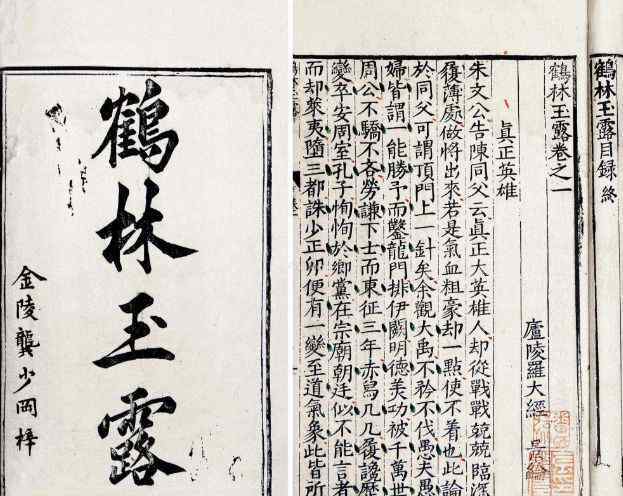 鶴林玉露
金陵龔少岡梓
鶴林玉露目録終
鶴林玉露卷之一
廬陵羅大經
眞正英雄
朱文公告陳同父云眞正大英雄人却從戰戰兢兢臨深
履薄處做將出來若是氣血粗豪却一點使不着也此論
於同父可謂頂門上一針矣余觀大禹不矜不伐愚夫愚
婦皆謂一能勝予而鑿龍門排伊闕明德美功被千萬世
周公不驕不吝勞謙下士而東征三年赤舄几几履讒歷
變卒安周室孔子恂恂於鄉黨在宗廟朝廷似不能言者
而却萊夷墮三都誅少正卯便有一變至道氣象此皆所